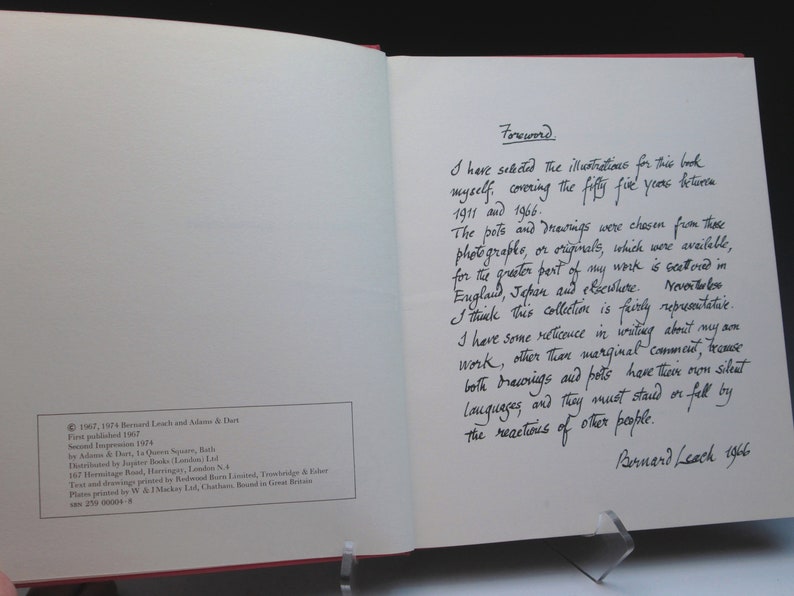 © 1967, 1974 Bernard Leach and Adams & Dart
First published 1967
Second Impression 1974
by Adams & Dart, 1a Queen Square, Bath
Distributed by Jupiter Books (London) Ltd
167 Hermitage Road, Harringay, London N.4
Text and drawings printed by Redwood Burn Limited, Trowbridge & Esher
Plates printed by W & J Mackay Ltd, Chatham. Bound in Great Britain
SBN 239 00004·8
Foreword.
I have selected the illustrations for this book
myself, covering the fifty five years between
1911 and 1966.
The pots and drawings were chosen from those
photographs, or originals, which were available,
for the greater part of my work is scattered in
England, Japan and elsewhere. Nevertheless
I think this collection is fairly representative.
I have some reticence in writing about my own
work, other than marginal comment, because
both drawings and pots have their own silent
languages, and they must stand or fall by
the reactions of other people.
Bernard Leach 1966